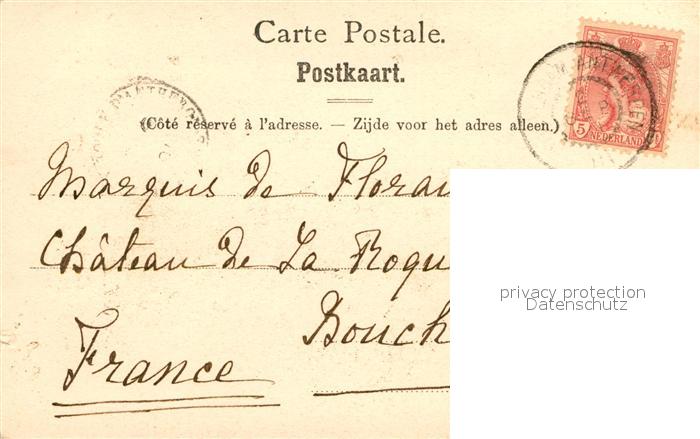 Carte Postale.
Postkaart.
(Côté réservé à l'adresse. — Zijde voor het adres alleen.)
5
NEDERLAND
Marquis de Florau
Château de La Roqu
Bouch
France
privacy protection
Datenschutz